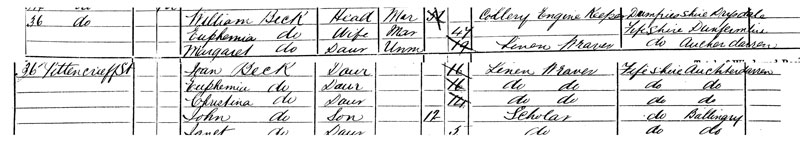 36 do William Beck Head Mar 51 Colliery Engine Keeper Dumfriesshire Drysdale
Euphemia do Wife Mar 47 Fifeshire Dunfermline
Margaret do Daur Unm 19 Linen Weaver do Aucherdarren
36 Pittencrieff St Joan Beck Daur 16 Linen Weaver Fifeshire Auchterdarren
Euphemia do Daur 16 do do do do
Christina do Daur 14 do do do do
John do Son 12 Scholar do Ballingry
Janet do Daur 5 do do do